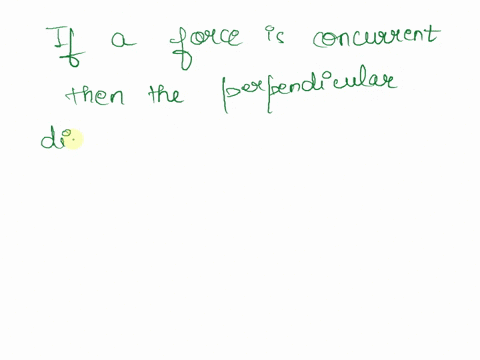 If a force is concurrent
then the perpendicular
di